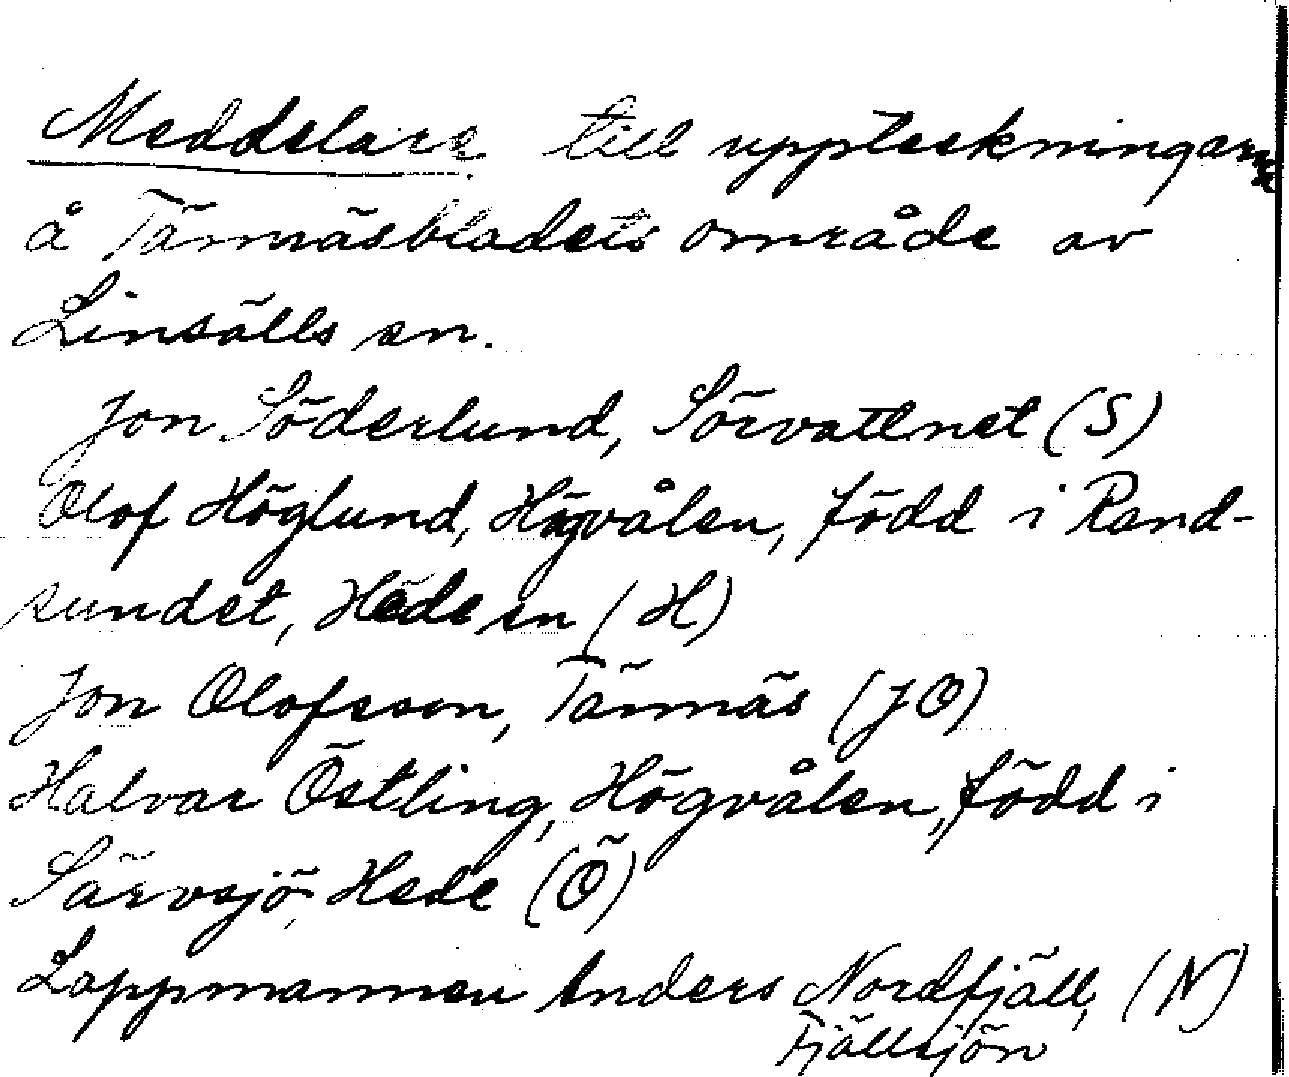 Meddelare till uppteckningarna
å Tännäsbladets område av
Linsälls sn.
Jon Söderlund, Sörvattnet (S)
Olof Höglund, Högvålen, född i Rand-
sundet, Hede sn (H)
Jon Olofsson, Tännäs (JO)
Halvar Östling, Högvålen, född i
Särvsjö, Hede (Ö)
Lappmannen Anders Nordfjäll, (N)
Fjällsjön